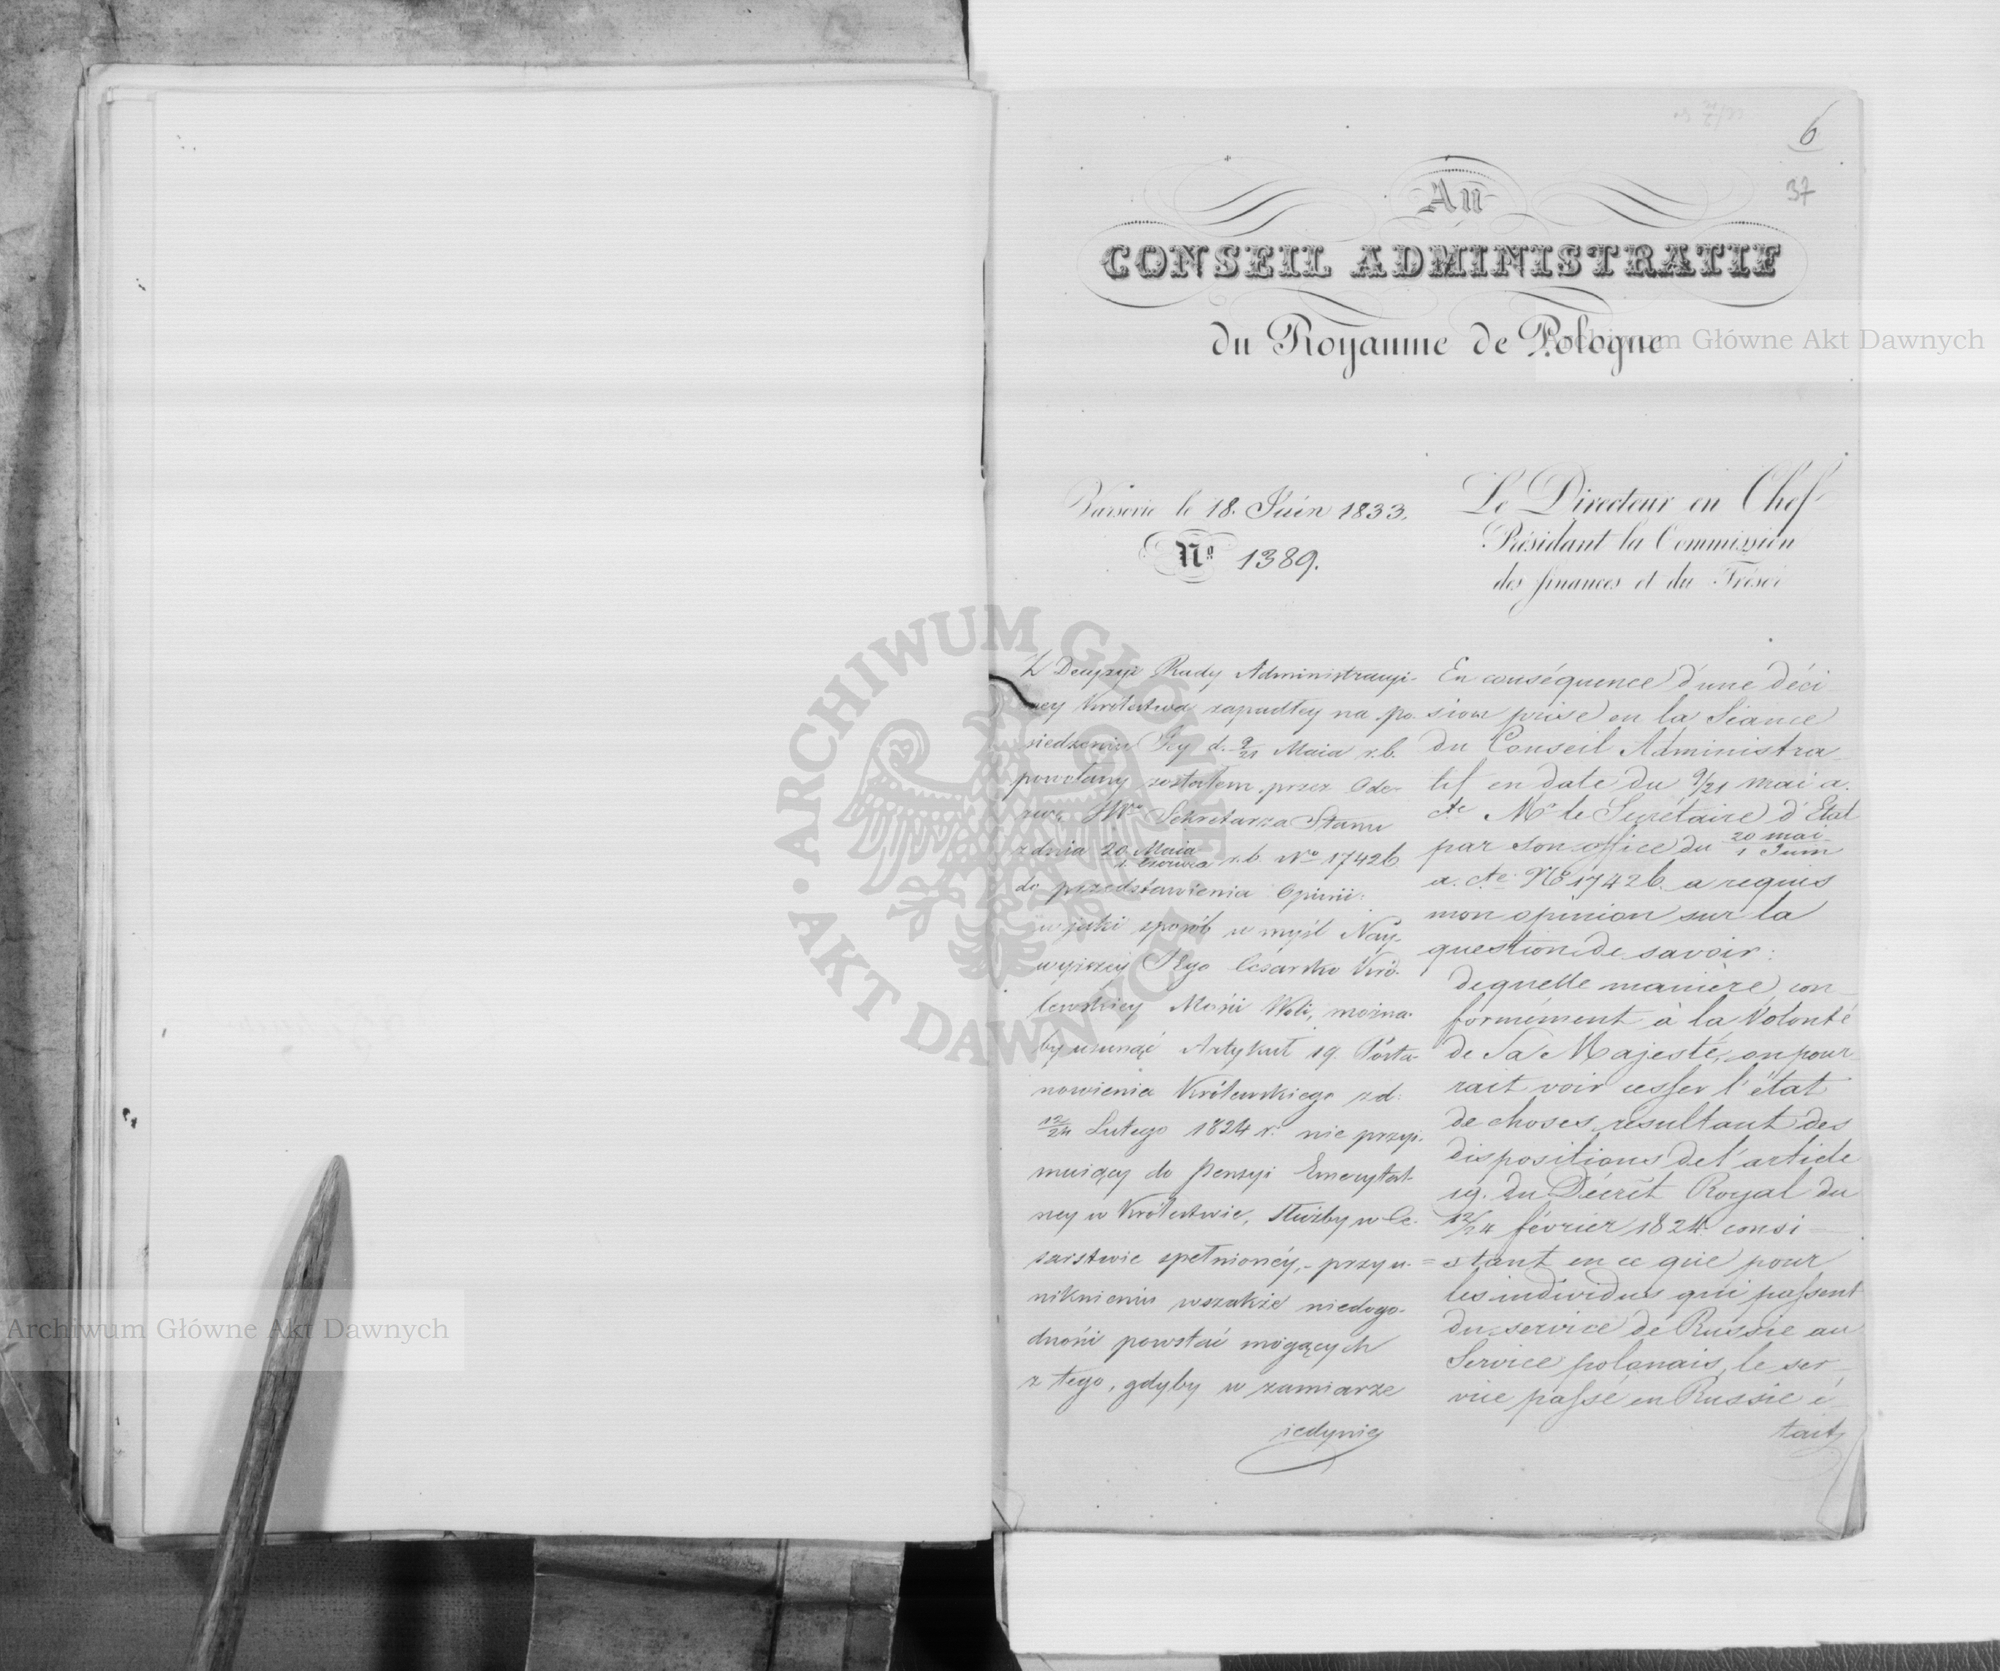 6
37
Au
CONSEIL ADMINISTRATIF
du Royaume de Pologne
Varsovie le 18. Juin 1833.
No 1389.
Le Directeur en Chef
Présidant la Commission
des finances et du Trésor
Z Decyzyi Rady Administracyi-
ney Królestwa zapadłey na po-
siedzeniu Jey d. 9/21 Maia r.b.
powołany zostałem przez Ode-
zwę JWo Sekretarza Stanu
z dnia 20 Maia / 1 Czerwca r.b. No 17426
do przedstawienia Opinii:
w jaki sposób w myśl Nay-
wyższey Jego Cesarsko Kró-
lewskiey Mości Woli, można-
by usunąć Artykuł 19. Posta-
nowienia Królewskiego z d:
12/24 Lutego 1824 r. nie przyi-
muiący do Pensyi Emerytal-
ney w Królestwie, Służby w Ce-
sarstwie spełnioney, - przy u-
niknieniu wszakże niedogo-
dności powstać mogących
z tego, gdyby w zamiarze
iedynie
En conséquence d'une déci-
sion prise en la Séance
du Conseil Administra-
tif en date du 9/21 mai a.
cte Mr le Secrétaire d'Etat
par son office du 20 mai / 1 Juin
a. cte No 17426 a requis
mon opinion sur la
question de savoir:
de quelle manière, con-
formément à la Volonté
de Sa Majesté, on pour-
rait voir cesser l'état
de choses résultant des
dispositions de l'article
19. du Décret Royal du
12/24 février 1824 consi-
stant en ce que pour
les individus qui passent
du service de Russie au
Service polonais, le ser-
vice passé en Russie é-
tait
ARCHIWUM GŁÓWNE AKT DAWNYCH
Archiwum Główne Akt Dawnych
Archiwum Główne Akt Dawnych